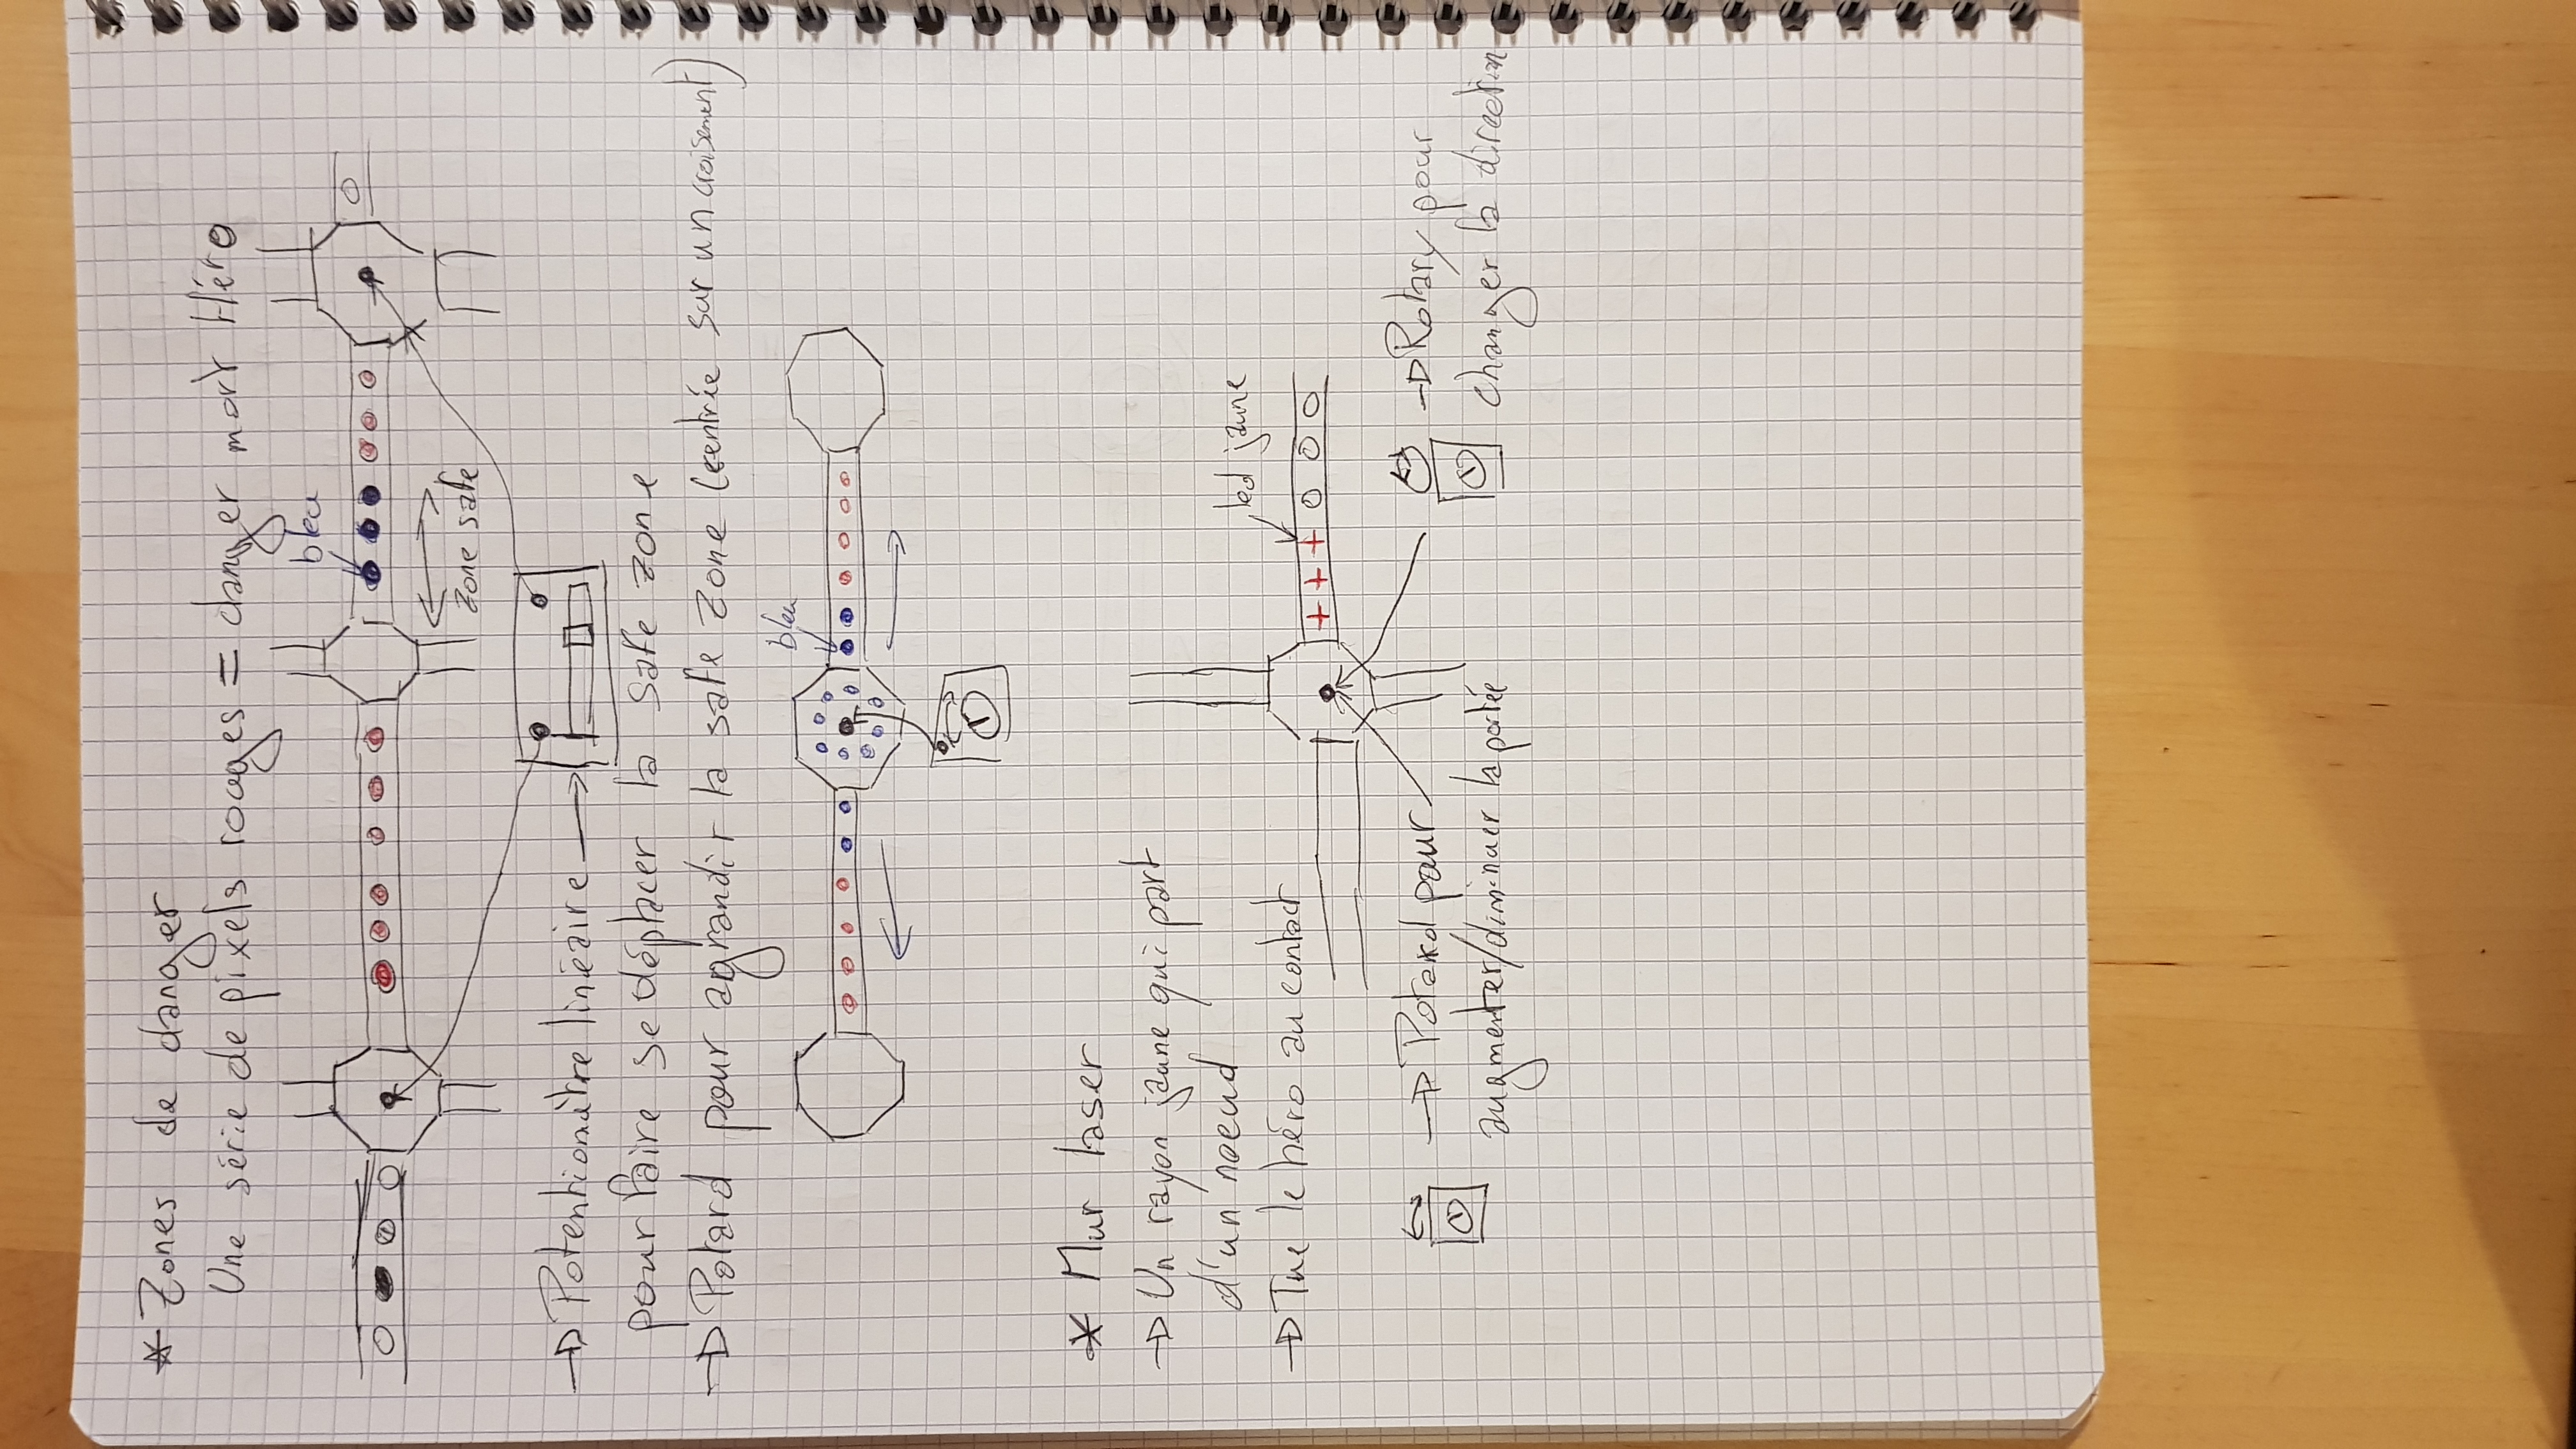 * Zones de danger
Une série de pixels rouges = danger mort Héro
bleu
zone safe
→ Potentiomètre linéaire →
pour faire se déplacer la safe zone
→ Potard pour agrandir la safe zone (centrée sur un croisement)
bleu
* Mur laser
→ Un rayon jaune qui part
d'un noeud
led jaune
→ Tue le héro au contact
→ Potard pour
augmenter/diminuer la portée
→ Rotary pour
changer la direction